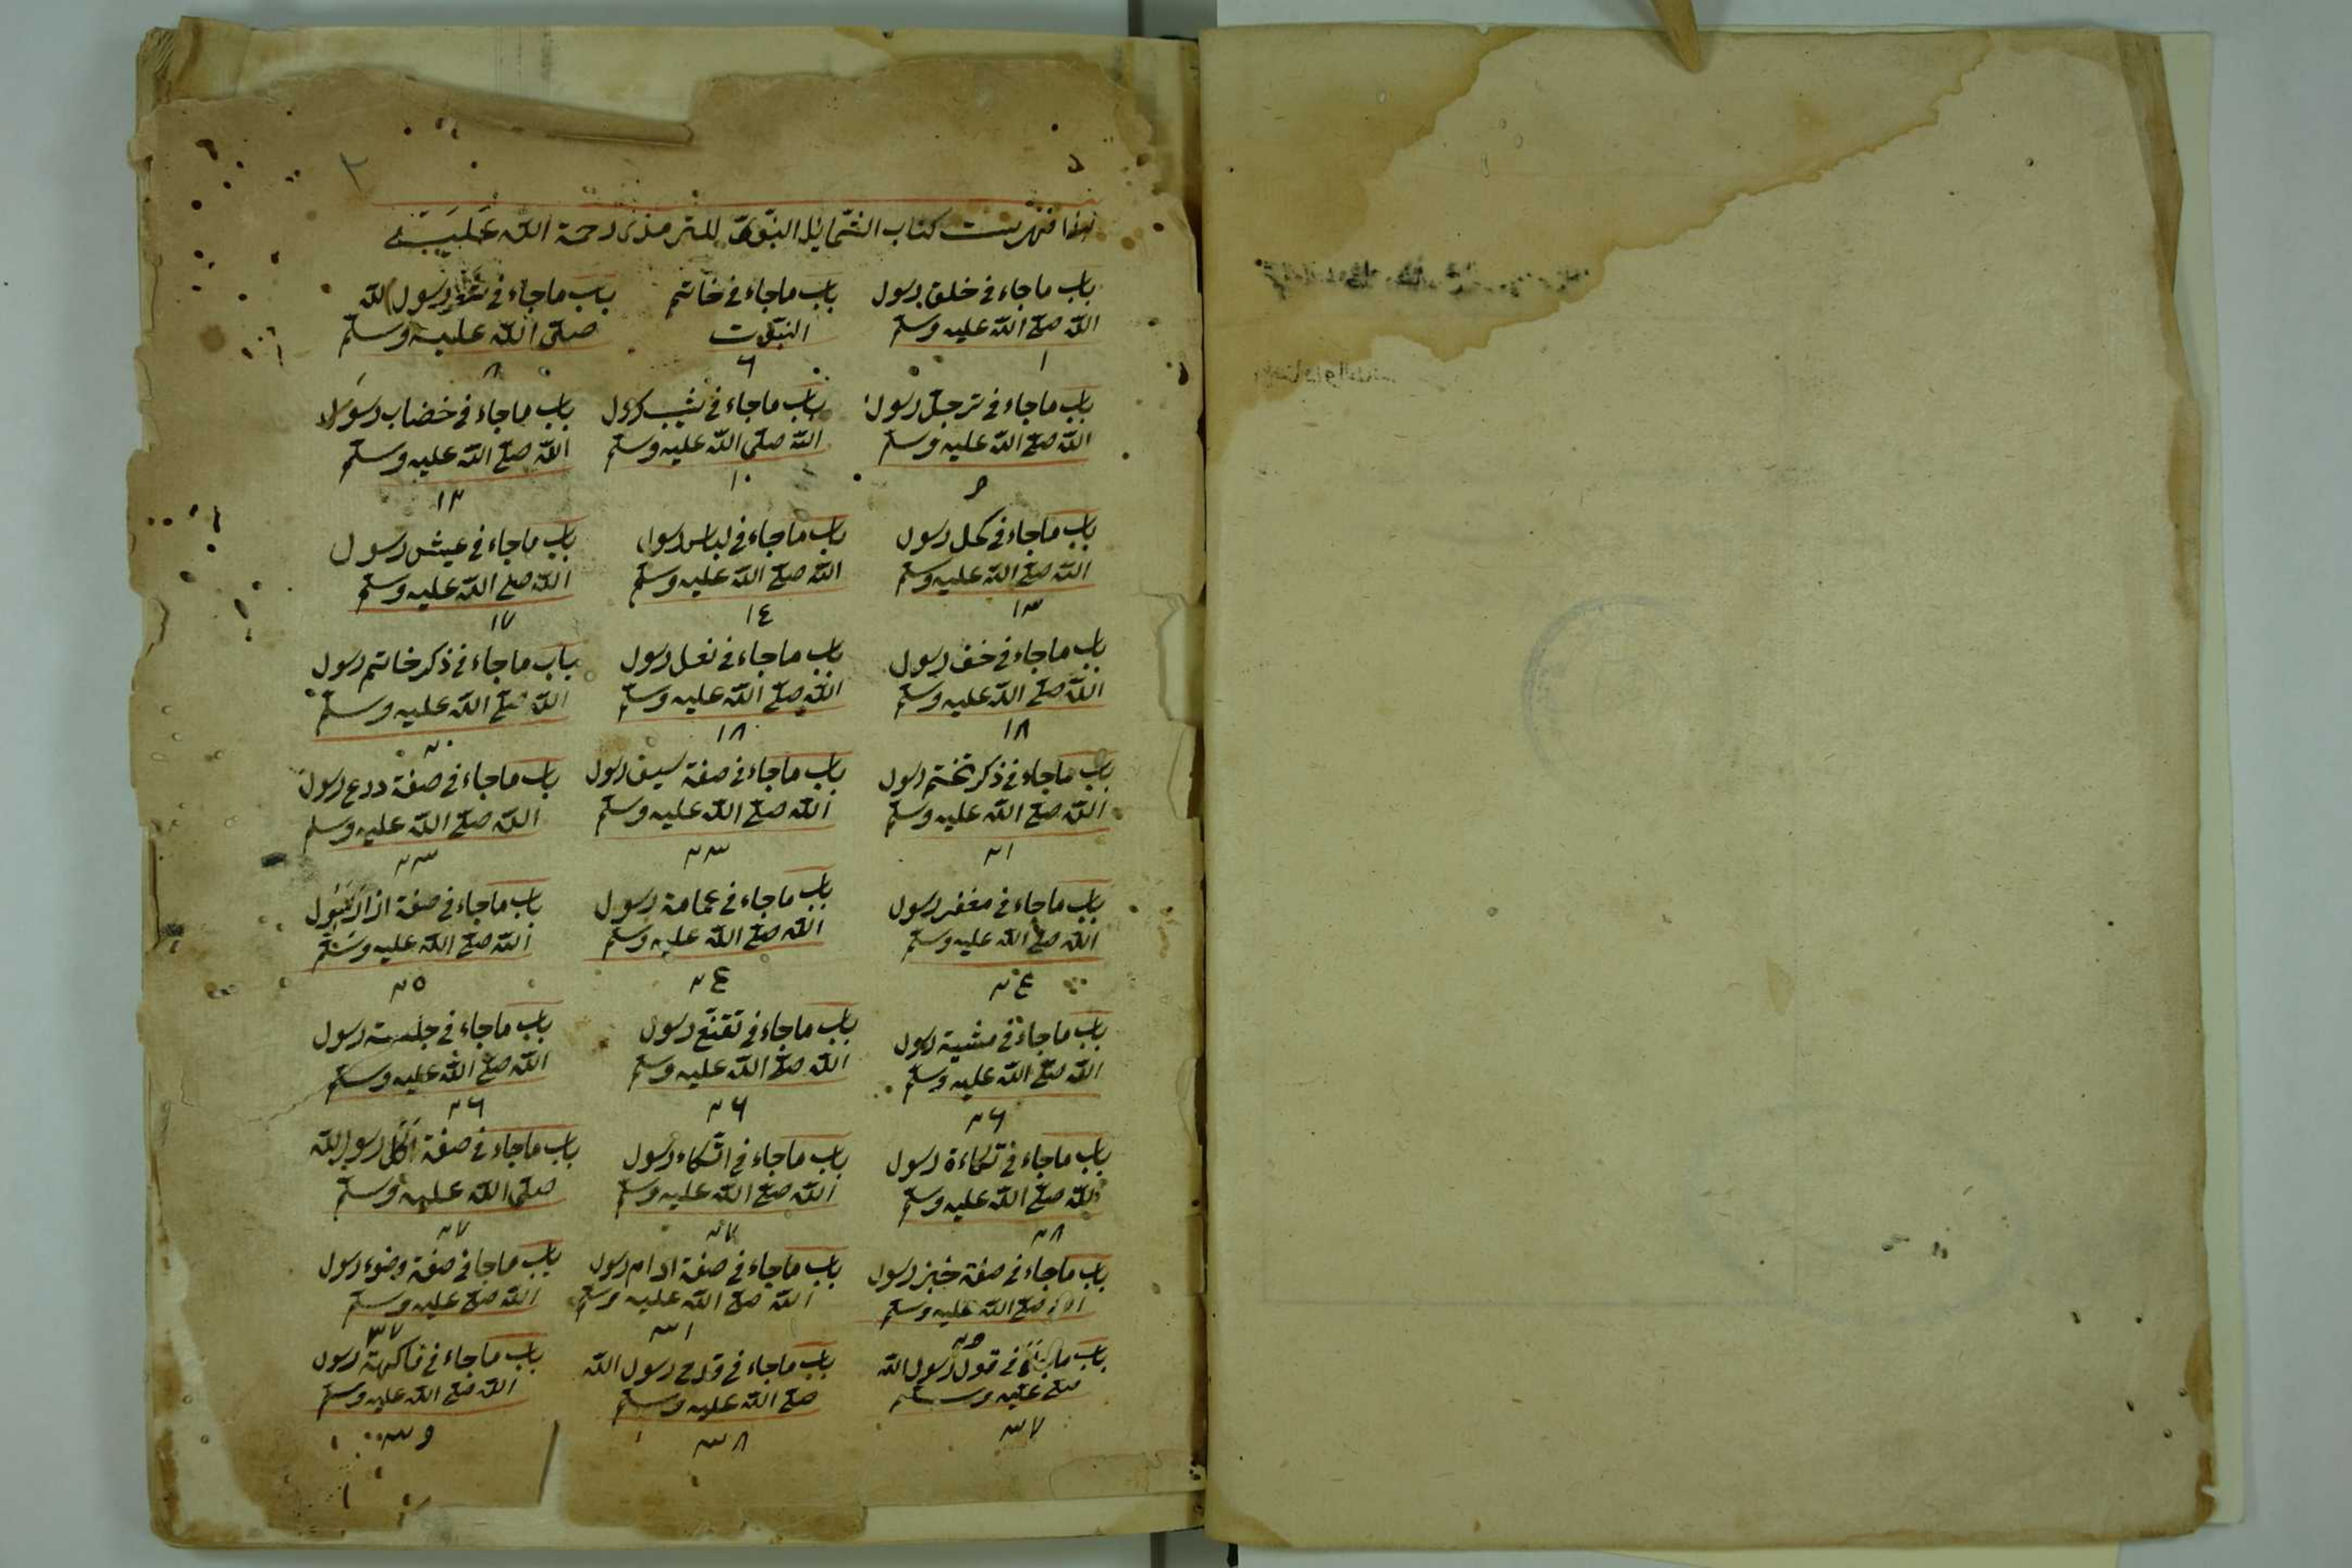 هذا فهرست كتاب الشمايل النبوى للترمذى رحمة الله عليه
باب ماجاء فى خلق رسول
الله صلى الله عليه وسلم
١
باب ماجاء فى خاتم
النبوت
٦
باب ماجاء فى شعر رسول الله
صلى الله عليه وسلم
٨
باب ماجاء فى ترجل رسول
الله صلى الله عليه وسلم
٩
باب ماجاء فى شيب رسول
الله صلى الله عليه وسلم
١٠
باب ماجاء فى خضاب رسول
الله صلى الله عليه وسلم
١٢
باب ماجاء فى كحل رسول
الله صلى الله عليه وسلم
١٣
باب ماجاء فى لباس رسول
الله صلى الله عليه وسلم
١٤
باب ماجاء فى عيش رسول
الله صلى الله عليه وسلم
١٧
باب ماجاء فى خف رسول
الله صلى الله عليه وسلم
١٨
باب ماجاء فى نعل رسول
الله صلى الله عليه وسلم
١٨
باب ماجاء فى ذكر خاتم رسول
الله صلى الله عليه وسلم
٢٠
باب ماجاء فى ذكر تختم رسول
الله صلى الله عليه وسلم
٢١
باب ماجاء فى صفة سيف رسول
الله صلى الله عليه وسلم
٢٣
باب ماجاء فى صفة درع رسول
الله صلى الله عليه وسلم
٢٣
باب ماجاء فى مغفر رسول
الله صلى الله عليه وسلم
٢٤
باب ماجاء فى عمامة رسول
الله صلى الله عليه وسلم
٢٤
باب ماجاء فى صفة ازار رسول
الله صلى الله عليه وسلم
٢٥
باب ماجاء فى مشية رسول
الله صلى الله عليه وسلم
٢٦
باب ماجاء فى تقنع رسول
الله صلى الله عليه وسلم
٢٦
باب ماجاء فى جلسة رسول
الله صلى الله عليه وسلم
٢٦
باب ماجاء فى تكاءة رسول
الله صلى الله عليه وسلم
٢٨
باب ماجاء فى اتكاء رسول
الله صلى الله عليه وسلم
٢٧
باب ماجاء فى صفة اكل رسول الله
صلى الله عليه وسلم
٢٧
باب ماجاء فى صفة خبز رسول
الله صلى الله عليه وسلم
٢٩
باب ماجاء فى صفة ادام رسول
الله صلى الله عليه وسلم
٣١
باب ماجا فى صفة وضوء رسول
الله صلى عليه وسلم
٣٧
باب فى قول رسول الله
صلى عليه وسلم
٣٧
باب ماجاء فى قدح رسول الله
صلى الله عليه وسلم
٣٨
باب ماجاء فى فاكهة رسول
الله صلى الله عليه وسلم
٣٩